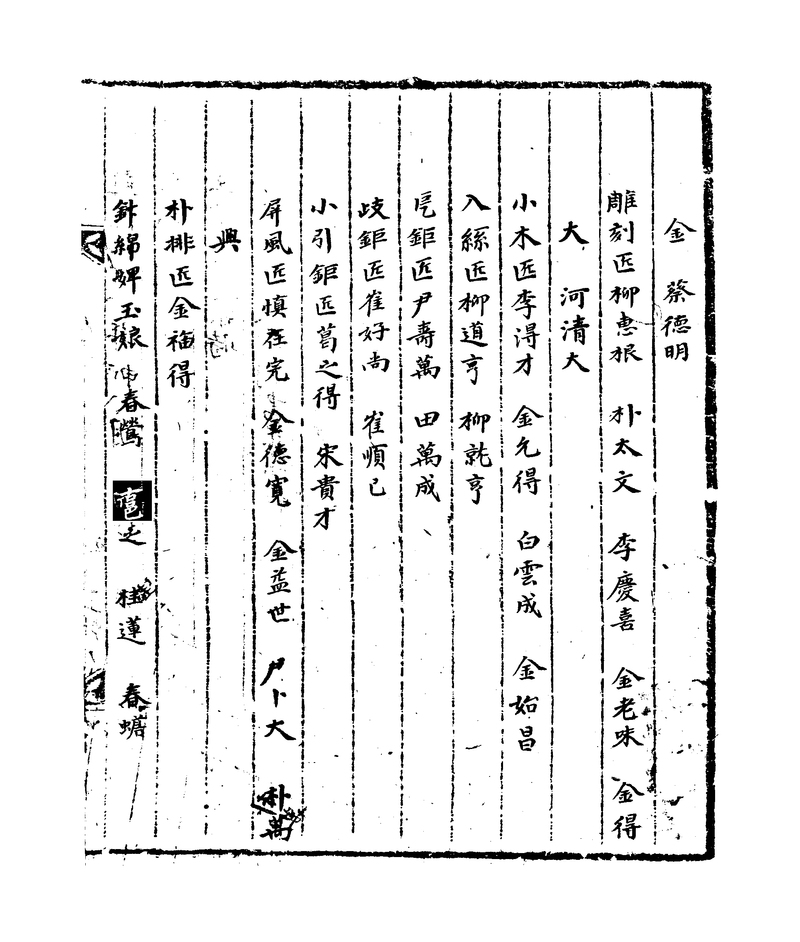 金 蔡德明
雕刻匠柳惠根 朴太文 李慶喜 金老味 金得
大 河清大
小木匠李淂才 金允得 白雲成 金始昌
入絲匠柳道亨 柳就亨
鉅匠尹壽萬 田萬成
歧鉅匠崔好尚 崔順已
小引鉅匠葛之得 宋貴才
屏風匠慎在完 金德寬 金益世 尹卜大 朴萬
興
朴排匠金福得
針線婢玉娘 春鶯 之 桂蓮 春蟾